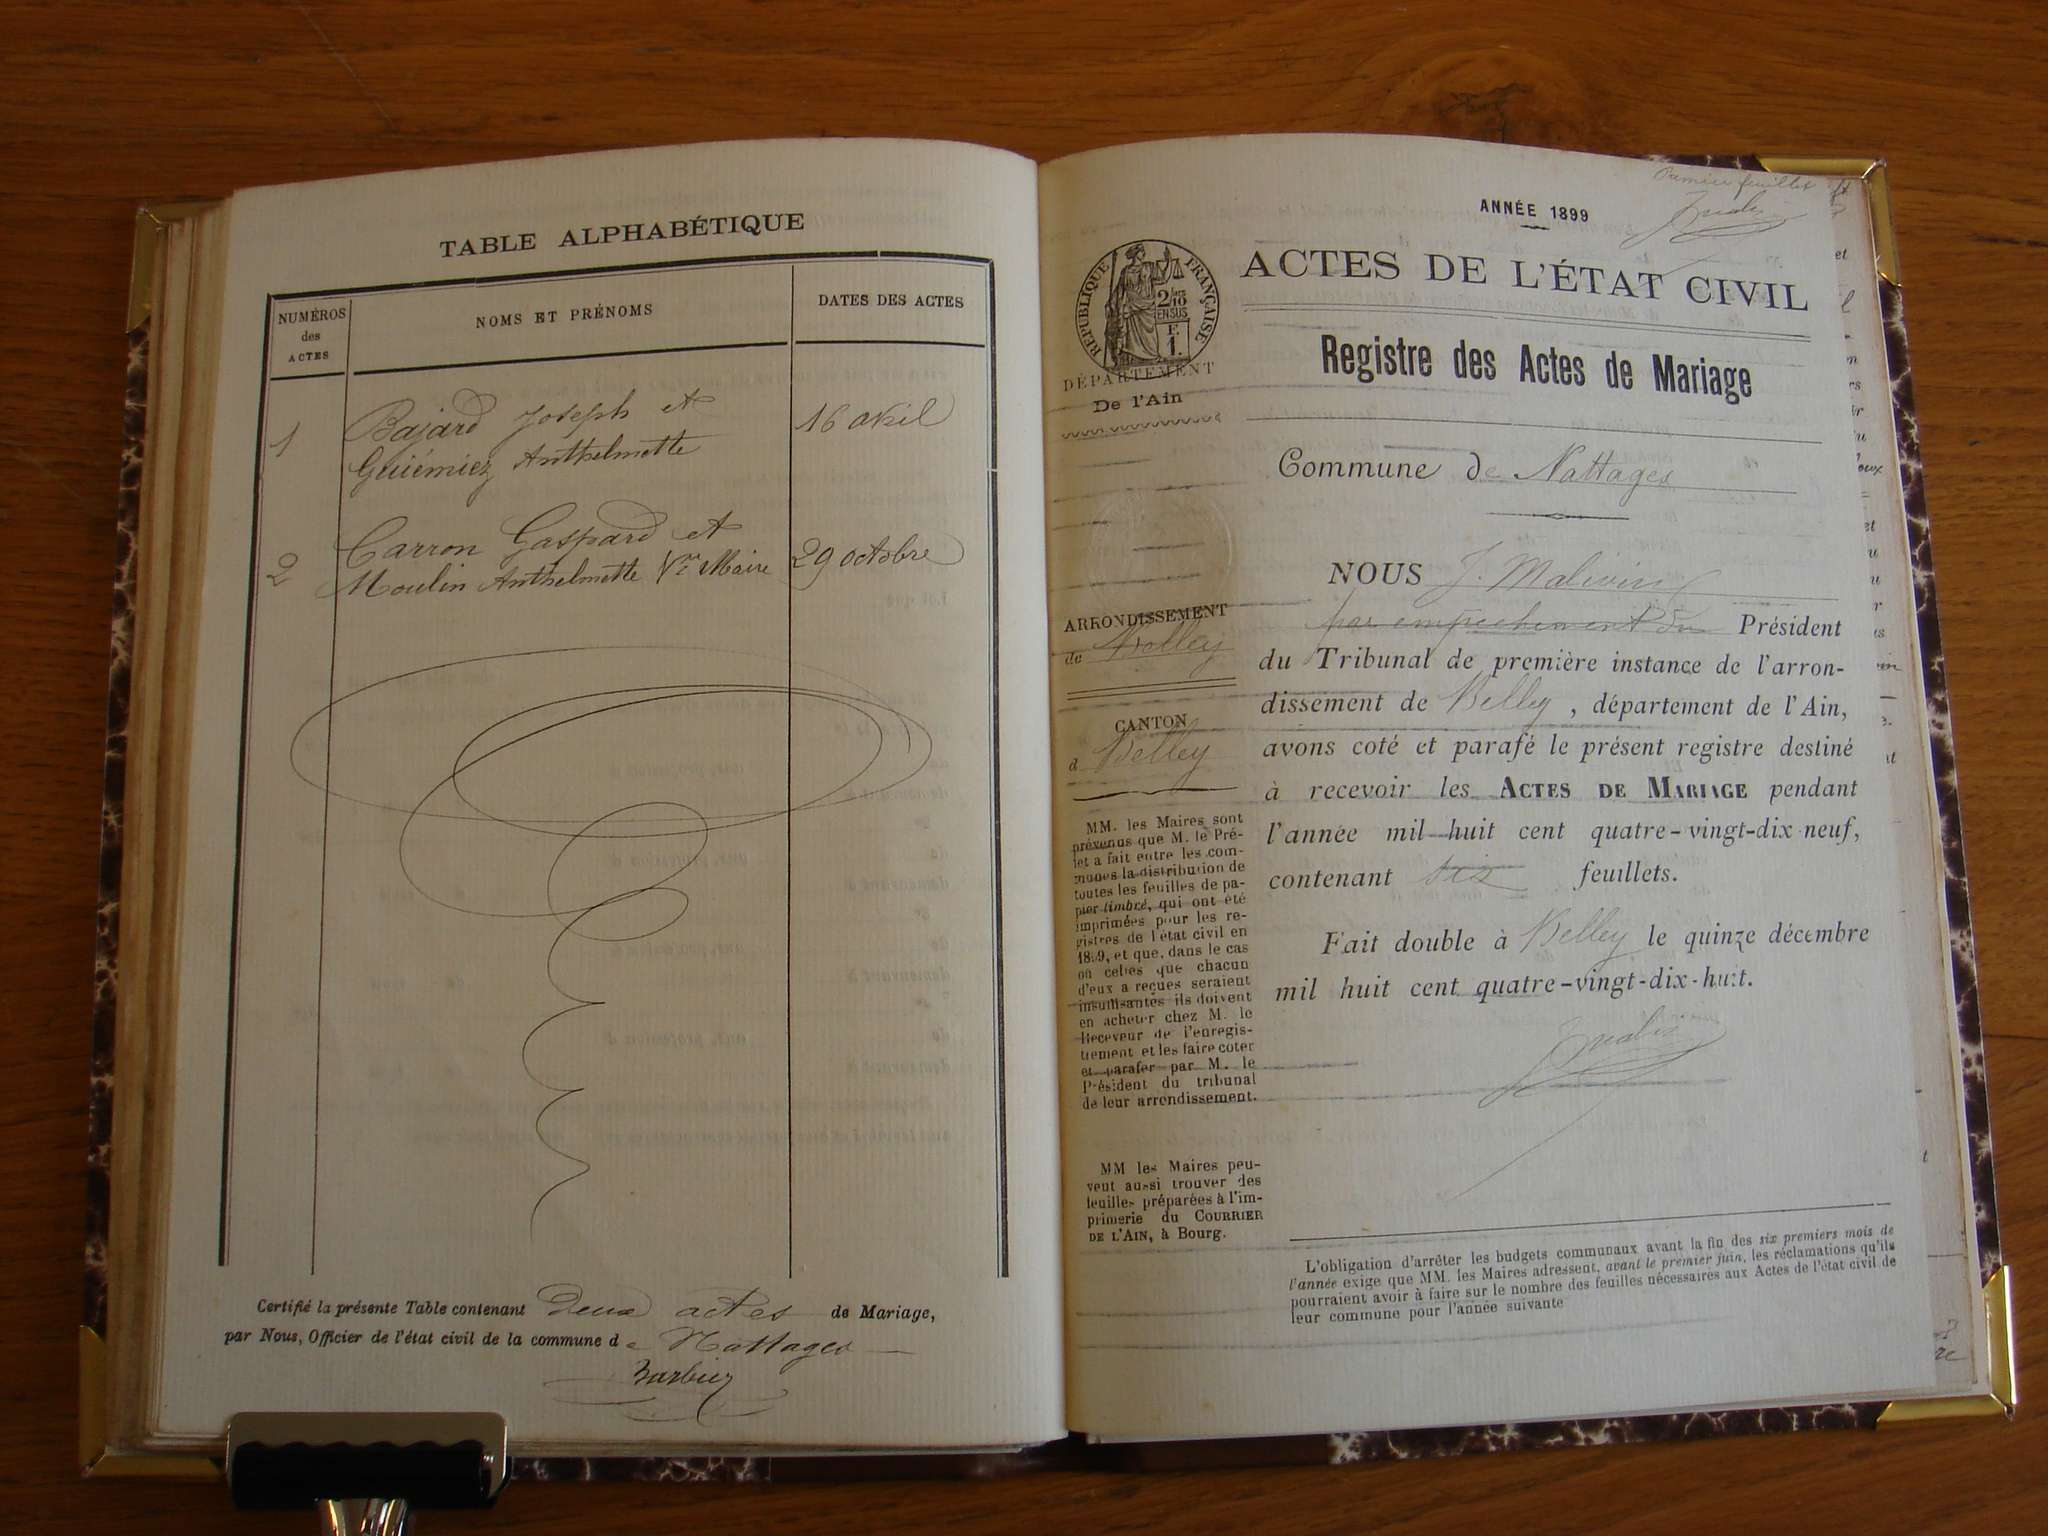 TABLE ALPHABÉTIQUE
NUMÉROS
des
ACTES
NOMS ET PRÉNOMS
DATES DES ACTES
1
Bajard Joseph et
Guiémiez Anthelmette
16 avril
2
Carron Gaspard et
Moulin Anthelmette Vve Maire
29 octobre
Certifié la présente Table contenant deux actes de Mariage,
par Nous, Officier de l'état civil de la commune de Nattages
Barbier
Premier feuillet
ANNÉE 1899
ACTES DE L'ÉTAT CIVIL
RÉPUBLIQUE FRANÇAISE
2/10
EN SUS
F.
1.
DÉPARTEMENT
De l'Ain
Registre des Actes de Mariage
Commune de Nattages
ARRONDISSEMENT
de Belley
CANTON
d Belley
MM. les Maires sont
prévenus que M. le Pré-
fet a fait entre les com-
munes la distribution de
toutes les feuilles de pa-
pier timbré, qui ont été
imprimées pour les re-
gistres de l'état civil en
1899, et que, dans le cas
où celles que chacun
d'eux a reçues seraient
insuffisantes ils doivent
en acheter chez M. le
Receveur de l'enregis-
trement et les faire coter
et parafer par M. le
Président du tribunal
de leur arrondissement.
MM les Maires peu-
vent aussi trouver des
feuilles préparées à l'im-
primerie du COURRIER
DE L'AIN, à Bourg.
NOUS J. Malivin
par empêchement du Président
du Tribunal de première instance de l'arron-
dissement de Belley, département de l'Ain,
avons coté et parafé le présent registre destiné
à recevoir les ACTES DE MARIAGE pendant
l'année mil huit cent quatre-vingt-dix neuf,
contenant six feuillets.
Fait double à Belley le quinze décembre
mil huit cent quatre-vingt-dix-huit.
L'obligation d'arrêter les budgets communaux avant la fin des six premiers mois de
l'année exige que MM. les Maires adressent, avant le premier juin, les réclamations qu'ils
pourraient avoir à faire sur le nombre des feuilles nécessaires aux Actes de l'état civil de
leur commune pour l'année suivante